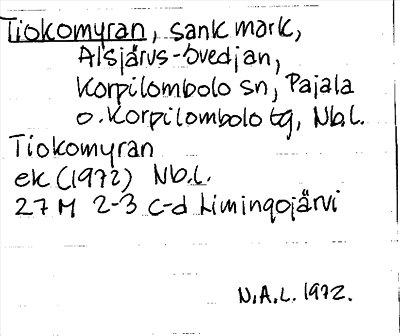 Tiokomyran, sank mark,
Alsjärvs-bvedjan,
Korpilombolo sn, Pajala
o. Korpilombolo tg, Nb.l.
Tiokomyran
ek (1972) Nb.l.
27 M 2-3 c-d Limingojärvi
N.A.L. 1972.